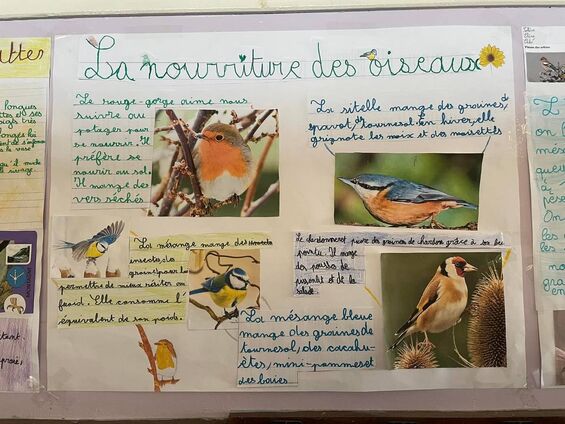 La nourriture des oiseaux
Le rouge-gorge aime nous
suivre au
potager pour
se nourrir. Il
préfère se
nourrir au sol.
Il mange des
vers séchés.
La sitelle mange des graines, de
pavot, de tournesol. En hiver, elle
grignote les noix et des noisettes
La mésange mange des
insectes, des
graines pour lui
permettre de mieux résister au
froid. Elle consomme l'
équivalent de son poids.
Le chardonneret pioche des graines de chardon grâce à son bec
pointu. Il mange
des pousses de
pissenlit et de la
salade.
La mésange bleue
mange des graines de
tournesol, des cacahu-
ètes, mini-pommes et
des baies.
longues